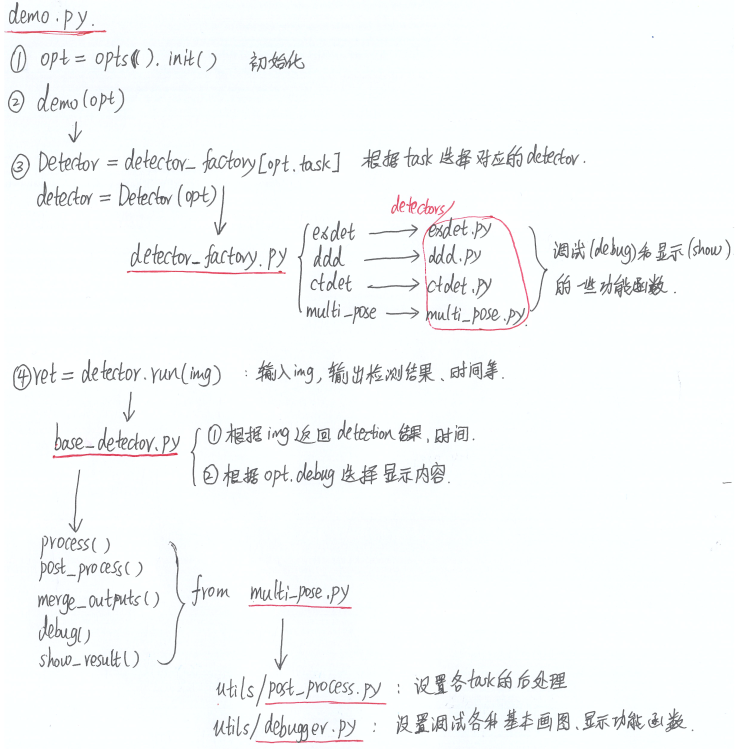 demo.py.
① opt = opts().init() 初始化
② demo(opt)
↓
③ Detector = detector_factory[opt.task] 根据task选择对应的detector.
detector = Detector(opt)
detectors
detector_factory.py
exdet → exdet.py
ddd → ddd.py
ctdet → ctdet.py
multi_pose → multi_pose.py
调试(debug)和显示(show)
的一些功能函数.
④ret = detector.run(img) : 输入img,输出检测结果、时间等.
base_detector.py
①根据img返回detection结果,时间.
②根据opt.debug选择显示内容.
process()
post_process()
merge_outputs()
debug()
show_result()
from multi_pose.py
utils/post_process.py : 设置各task的后处理
utils/debugger.py : 设置调试各种基本画图、显示功能函数.